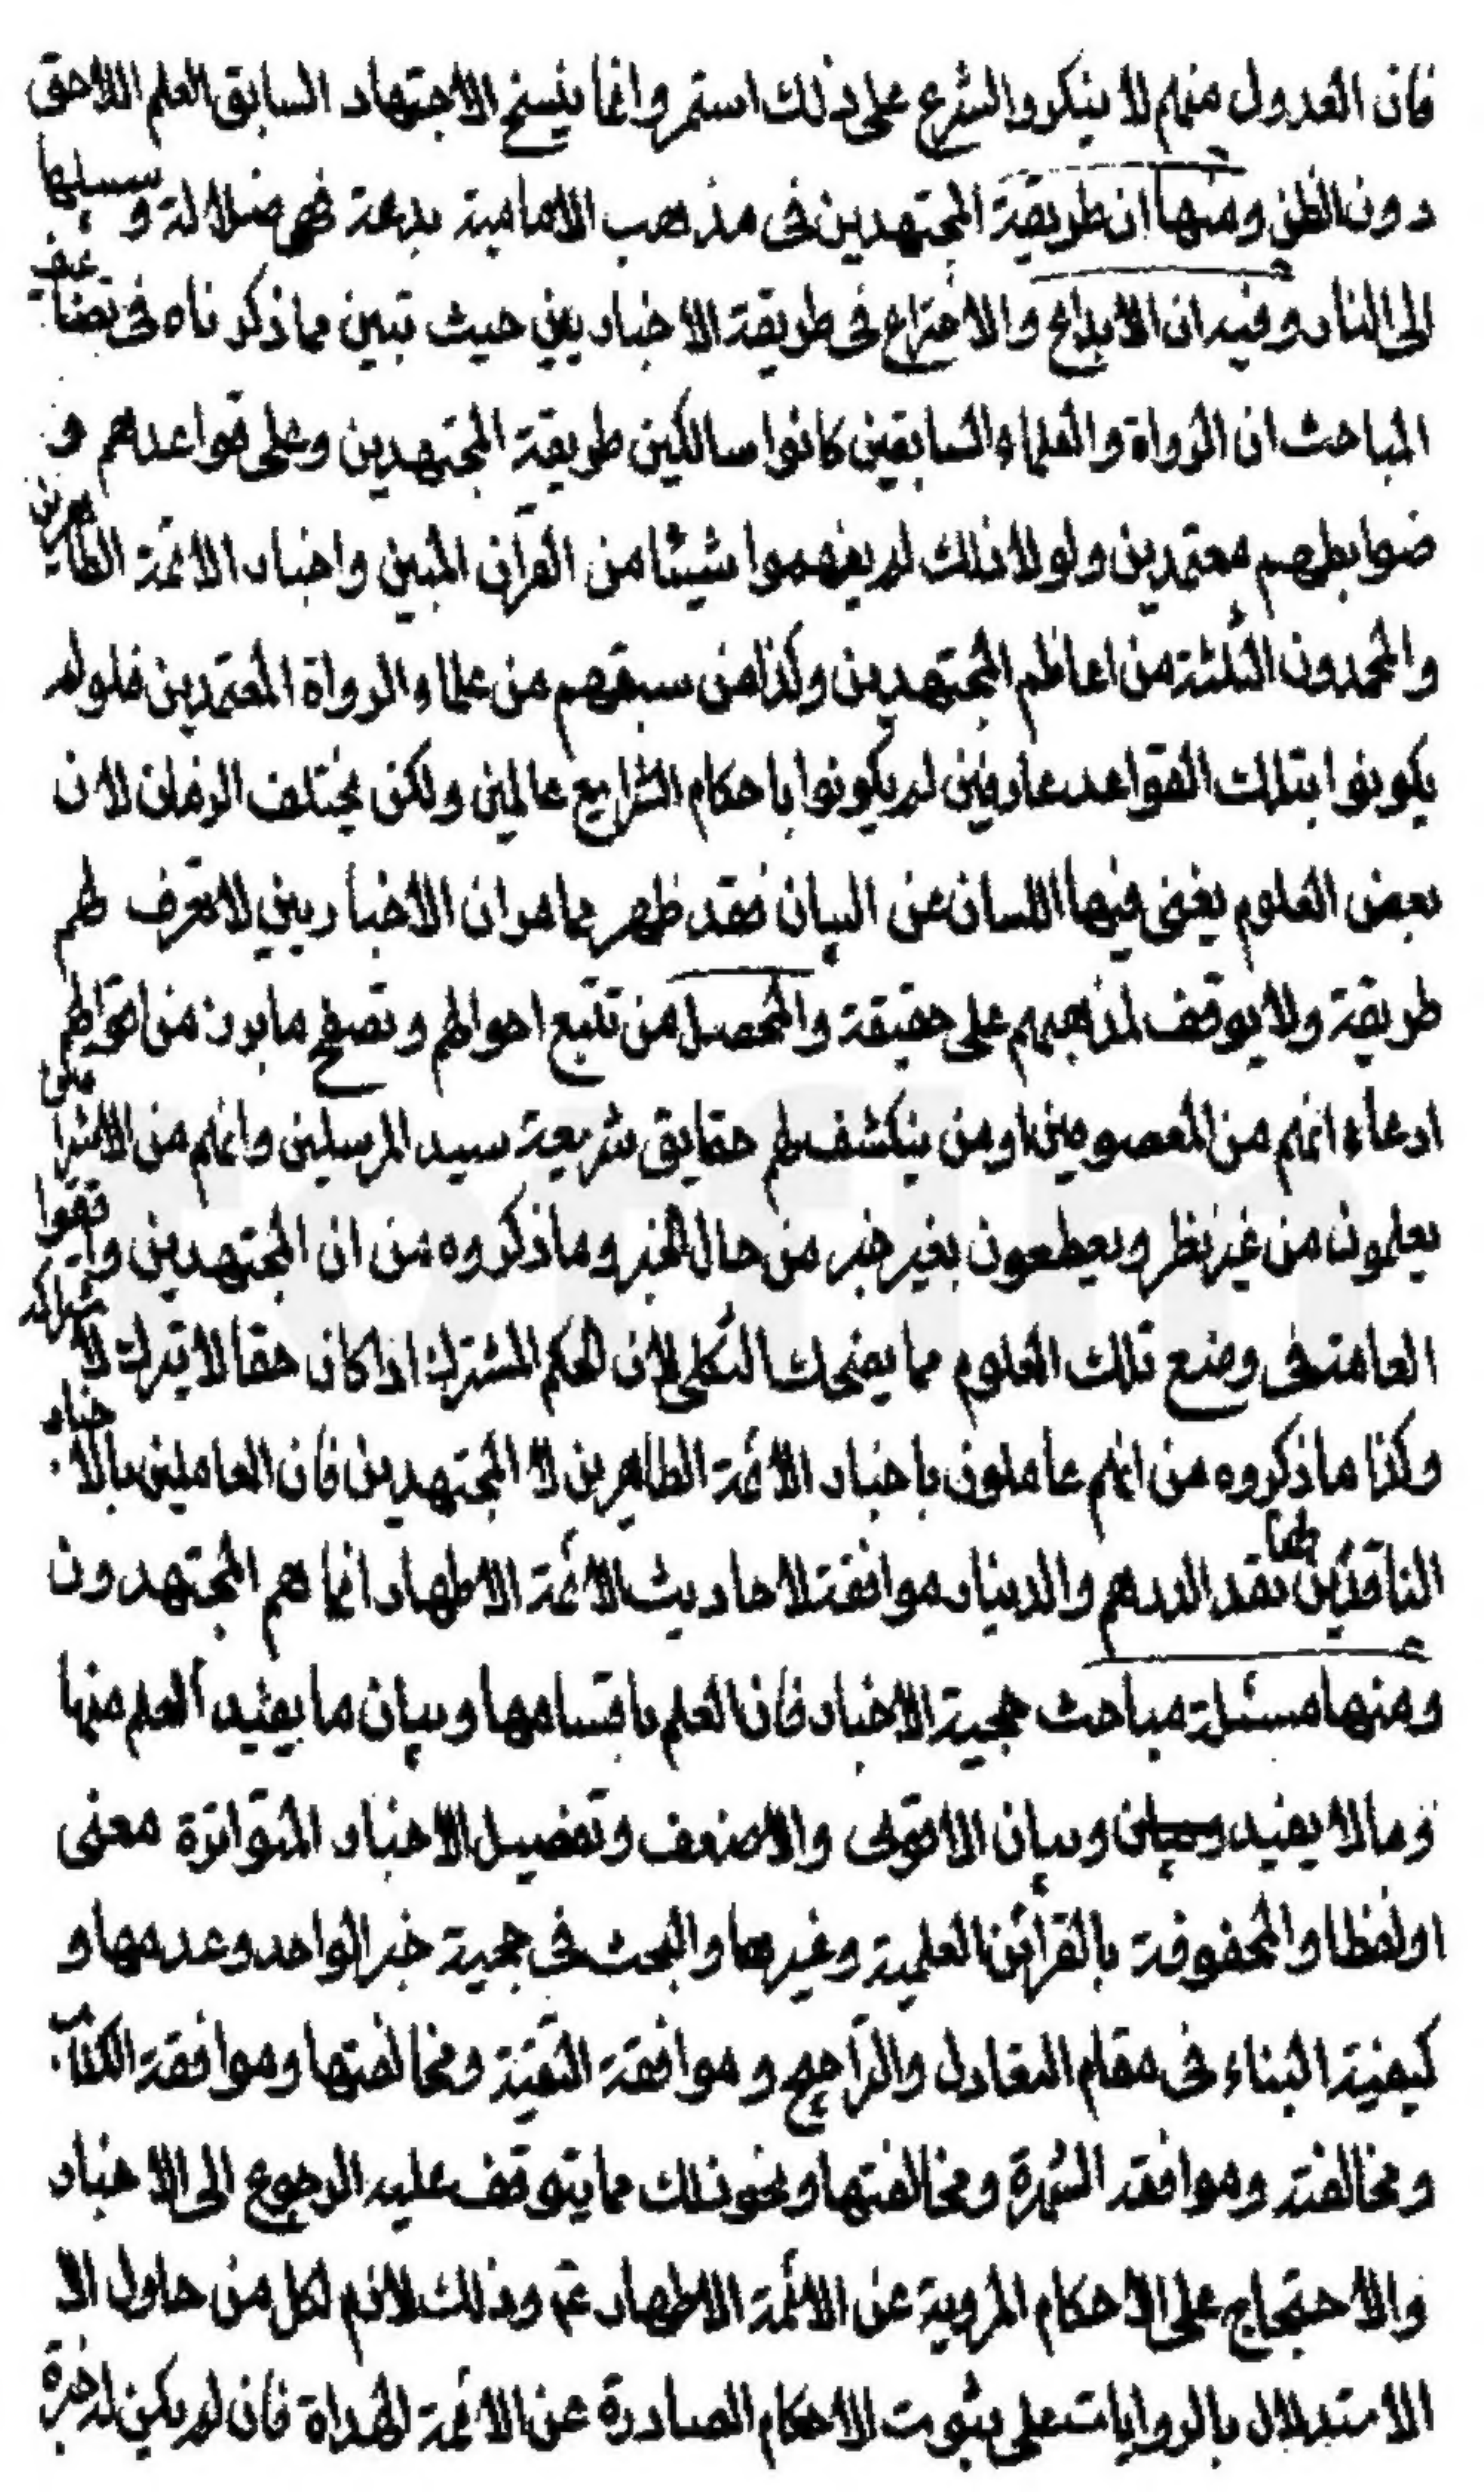 فان العدول منهم لا ينكر والشرع على ذلك استمر وانما ينسخ الاجتهاد السابق العلم اللاحق
دون الظن ومنها ان طريقة المجتهدين فى مذهب الامامية بدعة فهى ضلالة و سبيلها
الى النار وفيه ان الابداع والاختراع فى طريقة الاخباريين حيث تبين مما ذكرناه فى تضاعيف
المباحث ان الرواة والعلماء السابقين كانوا سالكين طريقة المجتهدين وعلى قواعدهم و
ضوابطهم معتمدين ولولا ذلك لم يفهموا شيئا من القرآن المبين واخبار الائمة الطاهرين
والمحمدون الثلثة من اعاظم المجتهدين وكذا من سبقهم من علماء الرواة المعتمدين فلو لم
يكونوا بتلك القواعد عارفين لم يكونوا باحكام الشرايع عالمين ولكن يختلف الزمان لان
بعض العلوم يغنى فيها اللسان عن البيان فقد ظهر مما مر ان الاخباريين لا تعرف لهم
طريقة ولا يوقف لمذهبهم على حقيقة والمحصل من تتبع احوالهم وتصفح ما برز من اقوالهم
ادعاء انهم من المعصومين او من ينكشف لهم حقايق شريعة سيد المرسلين وانهم من الاشراقيين
يعلمون من غير نظر ويقطعون بغير خبر من حال الخبر وما ذكروه من ان المجتهدين وافقوا
العامة فى وضع تلك العلوم مما يضحك الثكلى لان الحكم المشترك اذا كان حقا لا يترك لاشتراكه
وكذا ما ذكروه من انهم عاملون باخبار الائمة الطاهرين لا المجتهدين فان العاملين بالاخبار
الناقدين لها نقد الدرهم والدينار موافقة لاحاديث الائمة الاطهار انما هم المجتهدون
ومنها مسئلة مباحث حجية الاخبار فان العلم باقسامها وبيان ما يفيد العلم منها
وما لا يفيد وبيان وبيان الاقوى والاضعف وتفصيل الاخبار المتواترة معنى
او لفظا والمحفوفة بالقرائن العلمية وغيرها والبحث فى حجية خبر الواحد وعدمها و
كيفية البناء فى مقام التعادل والتراجيح و موافقة التقية ومخالفتها وموافقة الكتاب
ومخالفته وموافقة الشهرة ومخالفتها ونحو ذلك مما يتوقف عليه الرجوع الى الاخبار
والاحتجاج على الاحكام المروية عن الائمة الاطهار عم وذلك لازم لكل من حاول الا
الاستدلال بالروايات على ثبوت الاحكام الصادرة عن الائمة الهداة فان لم يكن له خبرة